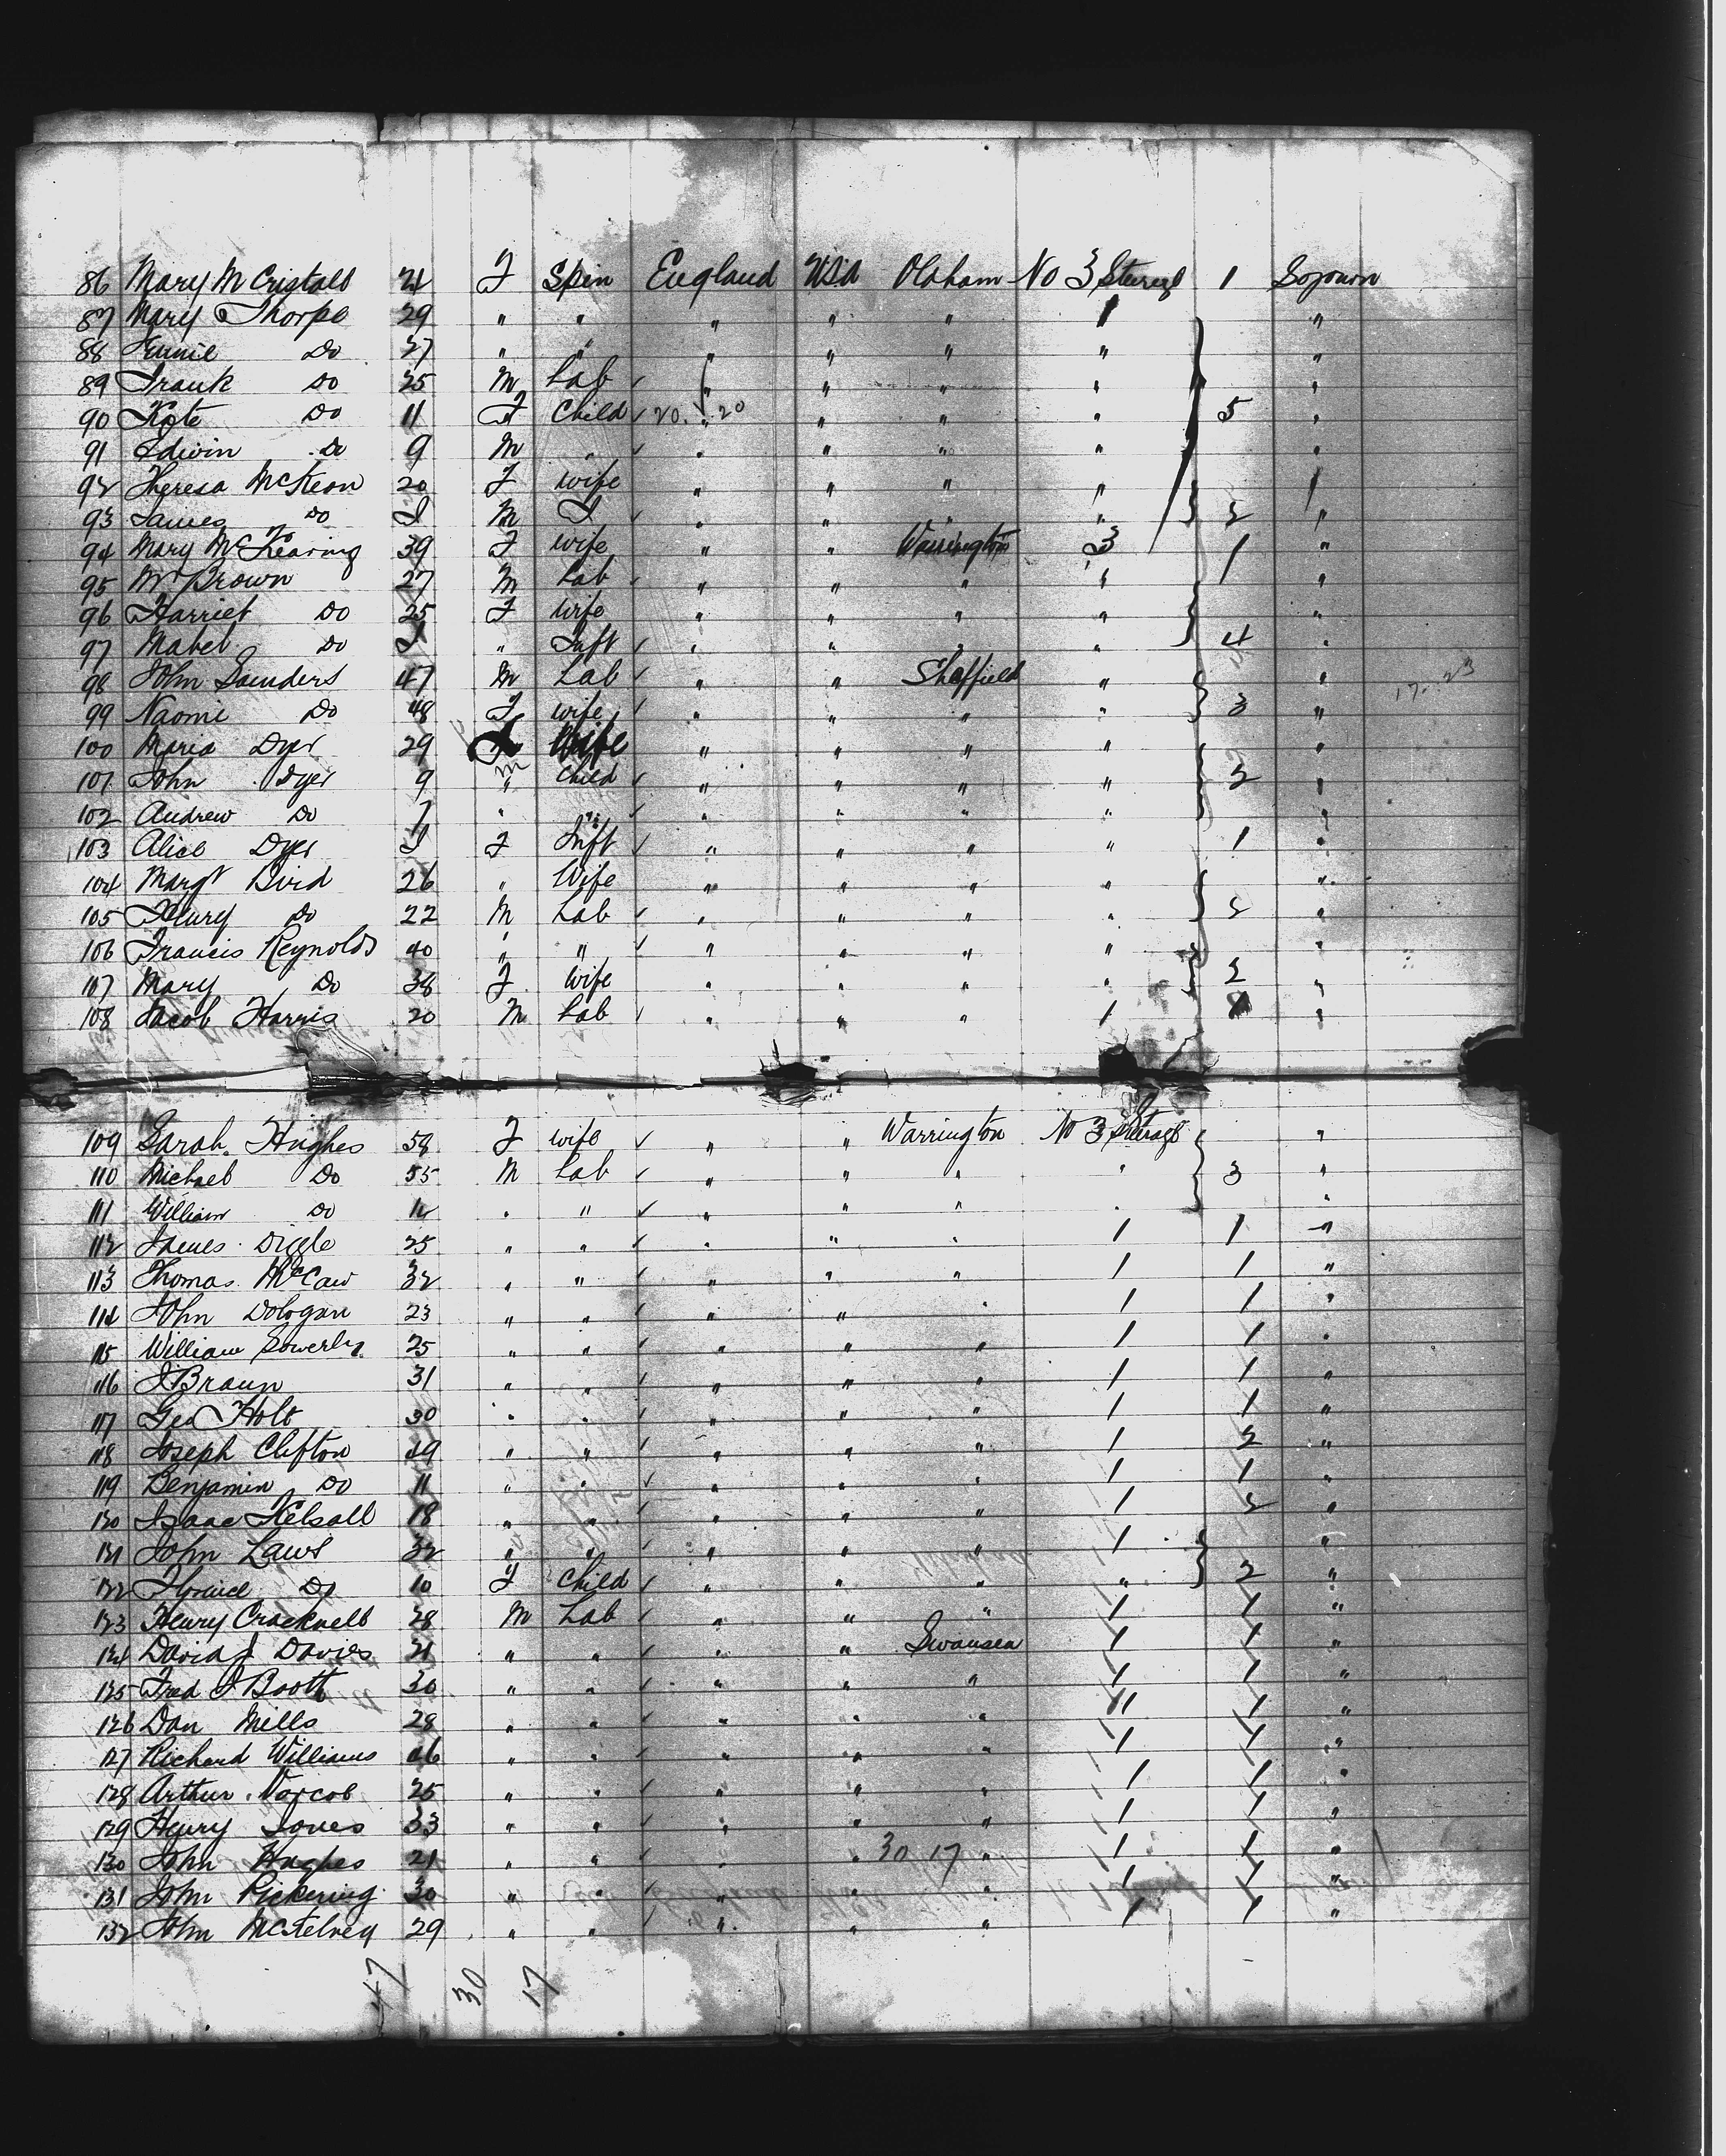 86 Mary McCristall 21 F Spin England USA Oldham No 3 Steerage 1 Sojourn
87 Mary Thorpe 29 " " " " " "
88 Do 27 " " " " " " "
89 Frank Do 25 M Lab " " " " "
90 Kate Do 11 F Child 20. 20 " " " " 5 "
91 Edwin Do 9 M " " " " " "
92 Theresa McKeon 20 F wife " " " "
93 James Do I M I " " " 2 "
94 Mary McKearing 39 F wife " " Warrington 3 1 "
95 Wm Brown 27 M Lab " " " " "
96 Harriet Do 25 F wife " " " " "
97 Mabel Do I " Inft " " " " 4 "
98 John Saunders 47 M Lab " " Sheffield " " 17. 23
99 Naomi Do 48 F wife " " " " 3 "
100 Maria Dyer 29 F Wife " " " " "
101 John Dyer 9 m " Child " " " " 2 "
102 Andrew Do 7 " " " " " " "
103 Alice Dyer I F Inft " " " " 1 "
104 Margt Bird 26 " Wife " " " " "
105 Henry Do 22 M Lab " " " " 2 "
106 Francis Reynolds 40 " " " " " " "
107 Mary Do 38 F wife " " " " 2 "
108 Jacob Harris 20 M Lab " " " 1 1 "
109 Sarah Hughes 58 F wife " " Warrington No 3 Steerage "
110 Michael Do 55 M Lab " " " " 3 "
111 William Do 12 " " " " " " "
112 James Diggle 25 " " " " " 1 1 "
113 Thomas McCaw 32 " " " " " 1 1 "
114 John Dologan 23 " " " " " 1 1 "
115 William Sowerby 25 " " " " " 1 1 "
116 J Braun 31 " " " " 1 1 "
117 Geo Holt 30 " " " " " 1 1 "
118 Joseph Clifton 49 " " " " " 1 2 "
119 Benjamin Do 11 " " " " " 1 1 "
120 Isaac Kelsall 18 " " " " " 1 2 "
121 John Laws 32 " " " " " 1 "
122 Do 10 F Child " " " " 2 "
123 Henry Cracknell 28 M Lab " " " 1 1 "
124 David J Davies 21 " " " " Swansea 1 1 "
125 Fred J Booth 30 " " " " " 1 1 "
126 Dan Mills 28 " " " " " 11 1 "
127 Richard Williams 46 " " " " " 1 1 "
128 Arthur 25 " " " " " 1 1 "
129 Henry Jones 33 " " " " " 1 1 "
130 John Hughes 21 " " " " 30 17 " 1 1 "
131 John Pickering 30 " " " " " 1 1 "
132 John McKelvey 29 " " " " " 1 1 "
47 30 17